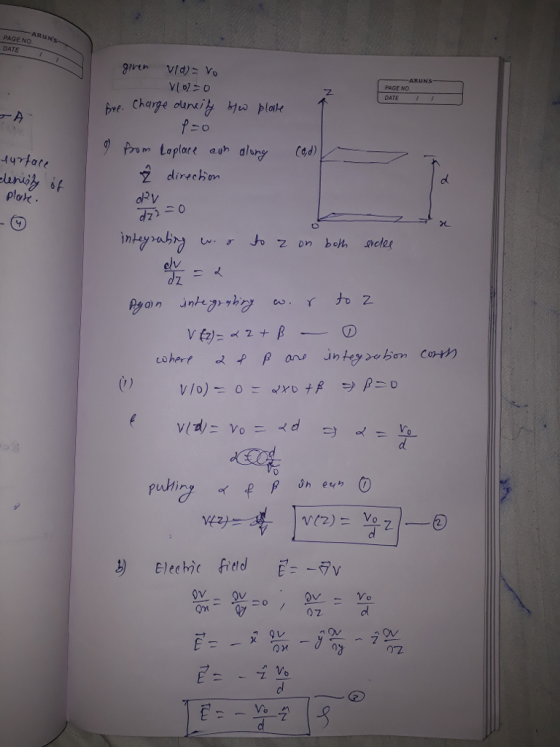 ARUNS
PAGE NO.
DATE / /
surface
density of
plate.
- ④
given V(d) = V₀
V(0) = 0
free. Charge density b/w plate
ρ = 0
ARUNS
PAGE NO.
DATE / /
Z
a) from Laplace eqn along
(0,d)
Ẑ direction
d
d²V/dz² = 0
O
x
integrating w. r to z on both sides
dV/dz = α
Again integrating w. r to z
V(z) = αz + β — ①
where α & β are integration const
(1) V(0) = 0 = α×0 + β ⇒ β = 0
& V(d) = V₀ = αd ⇒ α = V₀/d
putting α & β in eqn ①
V(z) = V₀/d z — ②
b) Electric field E⃗ = -∇⃗V
∂V/∂x = ∂V/∂y = 0 ; ∂V/∂z = V₀/d
E⃗ = - x̂ ∂V/∂x - ŷ ∂V/∂y - ẑ ∂V/∂z
E⃗ = - ẑ V₀/d
E⃗ = - V₀/d ẑ — ③